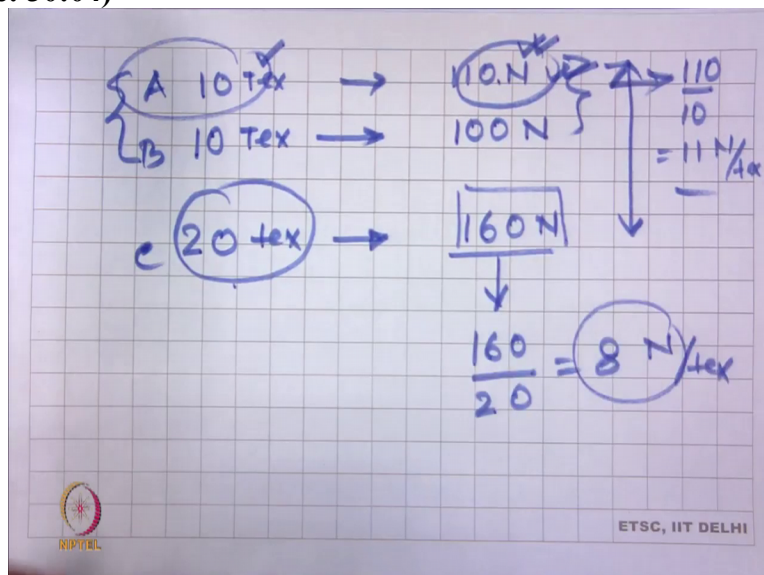 A 10 Tex → 110.N → 110
10
B 10 Tex → 100 N = 11 N/tex
c 20 tex → 160 N
160
20 = 8 N/tex
NPTEL
ETSC, IIT DELHI